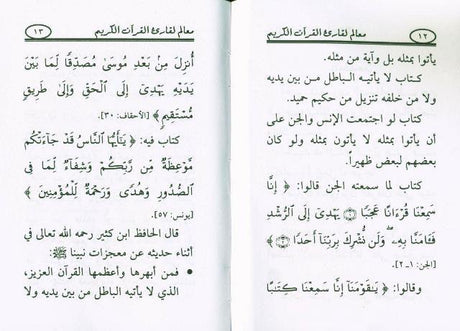 معالم لقارئ القرآن الكريم
١٢
يأتوا بمثله بل وآية من مثله.
كتاب لا يأتيه الباطل من بين يديه
ولا من خلفه تنزيل من حكيم حميد.
كتاب لو اجتمعت الإنس والجن على
أن يأتوا بمثله لا يأتون بمثله ولو كان
بعضهم لبعض ظهيراً.
كتاب لما سمعته الجن قالوا: ﴿ إِنَّا
سَمِعْنَا قُرْءَانًا عَجَبًا ۝١ يَهْدِىٓ إِلَى ٱلرُّشْدِ
فَـَٔامَنَّا بِهِۦ ۖ وَلَن نُّشْرِكَ بِرَبِّنَآ أَحَدًا ۝٢ ﴾
[الجن: ١-٢].
وقالوا: ﴿ يَـٰقَوْمَنَآ إِنَّا سَمِعْنَا كِتَـٰبًا
معالم لقارئ القرآن الكريم
١٣
أُنزِلَ مِنۢ بَعْدِ مُوسَىٰ مُصَدِّقًا لِّمَا بَيْنَ
يَدَيْهِ يَهْدِىٓ إِلَى ٱلْحَقِّ وَإِلَىٰ طَرِيقٍ
مُّسْتَقِيمٍ ﴾ [الأحقاف: ٣٠].
كتاب فيه: ﴿ يَـٰٓأَيُّهَا ٱلنَّاسُ قَدْ جَآءَتْكُم
مَّوْعِظَةٌ مِّن رَّبِّكُمْ وَشِفَآءٌ لِّمَا فِى
ٱلصُّدُورِ وَهُدًى وَرَحْمَةٌ لِّلْمُؤْمِنِينَ ﴾
[يونس: ٥٧].
قال الحافظ ابن كثير رحمه الله تعالى في
أثناء حديثه عن معجزات نبينا ﷺ:
• فمن أبهرها وأعظمها القرآن العزيز،
الذي لا يأتيه الباطل من بين يديه ولا